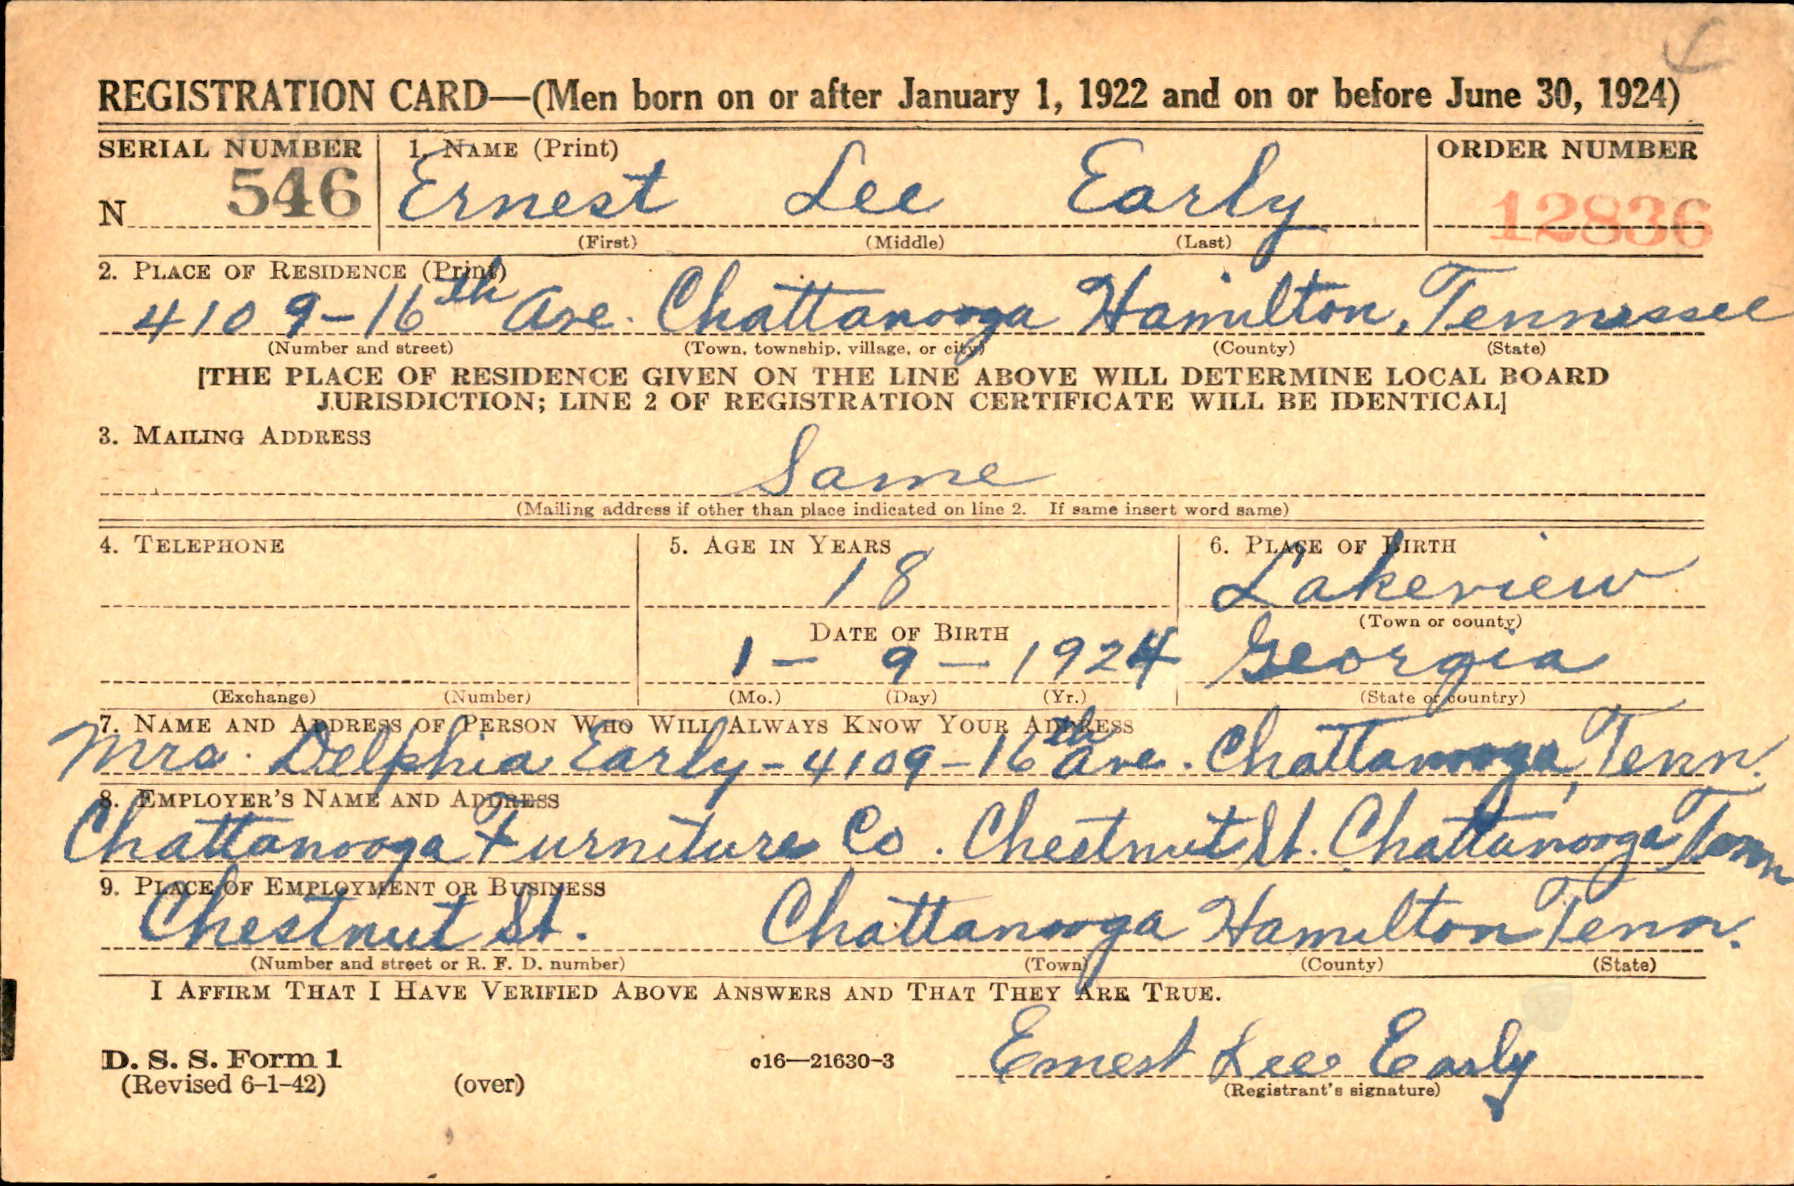 REGISTRATION CARD—(Men born on or after January 1, 1922 and on or before June 30, 1924)
SERIAL NUMBER 1. NAME (Print) ORDER NUMBER
N 546 Ernest Lee Early 12836
(First) (Middle) (Last)
2. PLACE OF RESIDENCE (Print)
4109-16th Ave. Chattanooga Hamilton, Tennessee
(Number and street) (Town, township, village, or city) (County) (State)
[THE PLACE OF RESIDENCE GIVEN ON THE LINE ABOVE WILL DETERMINE LOCAL BOARD
JURISDICTION; LINE 2 OF REGISTRATION CERTIFICATE WILL BE IDENTICAL]
3. MAILING ADDRESS
Same
(Mailing address if other than place indicated on line 2. If same insert word same)
4. TELEPHONE 5. AGE IN YEARS 6. PLACE OF BIRTH
18 Lakeview
DATE OF BIRTH (Town or county)
1 - 9 - 1924 Georgia
(Exchange) (Number) (Mo.) (Day) (Yr.) (State or country)
7. NAME AND ADDRESS OF PERSON WHO WILL ALWAYS KNOW YOUR ADDRESS
Mrs. Delphia Early - 4109-16th Ave. Chattanooga, Tenn.
8. EMPLOYER'S NAME AND ADDRESS
Chattanooga Furniture Co. Chestnut St. Chattanooga Tenn
9. PLACE OF EMPLOYMENT OR BUSINESS
Chestnut St. Chattanooga Hamilton Tenn.
(Number and street or R. F. D. number) (Town) (County) (State)
I AFFIRM THAT I HAVE VERIFIED ABOVE ANSWERS AND THAT THEY ARE TRUE.
D. S. S. Form 1 c16—21630-3 Ernest Lee Early
(Revised 6-1-42) (over) (Registrant's signature)